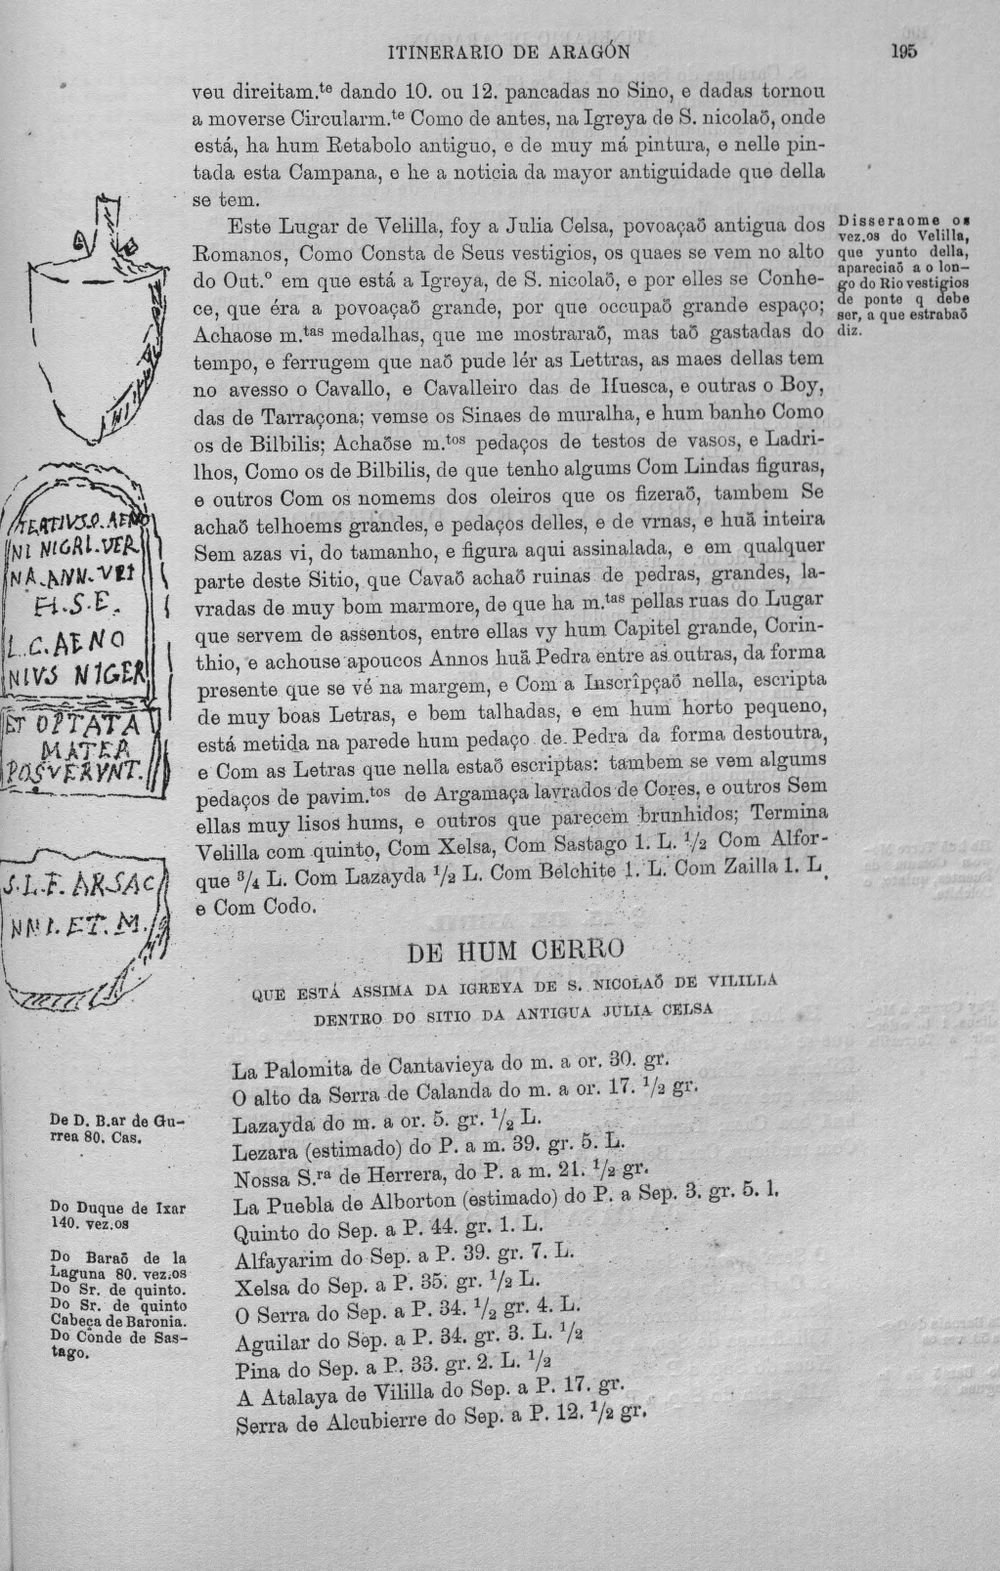 ITINERARIO DE ARAGÓN 195
veu direitam.te dando 10. ou 12. pancadas no Sino, e dadas tornou
a moverse Circularm.te Como de antes, na Igreya de S. nicolaõ, onde
está, ha hum Retabolo antiguo, e de muy má pintura, e nelle pin-
tada esta Campana, e he a noticia da mayor antiguidade que della
se tem.
Este Lugar de Velilla, foy a Julia Celsa, povoaçaõ antigua dos
Romanos, Como Consta de Seus vestigios, os quaes se vem no alto
do Out.º em que está a Igreya, de S. nicolaõ, e por elles se Conhe-
ce, que éra a povoaçaõ grande, por que occupaõ grande espaço;
Achaose m.tas medalhas, que me mostraraõ, mas taõ gastadas do
tempo, e ferrugem que naõ pude lér as Lettras, as maes dellas tem
no avesso o Cavallo, e Cavalleiro das de Huesca, e outras o Boy,
das de Tarraçona; vemse os Sinaes de muralha, e hum banho Como
os de Bilbilis; Achaõse m.tos pedaços de testos de vasos, e Ladri-
lhos, Como os de Bilbilis, de que tenho algums Com Lindas figuras,
e outros Com os nomems dos oleiros que os fizeraõ, tambem Se
achaõ telhoems grandes, e pedaços delles, e de vrnas, e huã inteira
Sem azas vi, do tamanho, e figura aqui assinalada, e em qualquer
parte deste Sitio, que Cavaõ achaõ ruinas de pedras, grandes, la-
vradas de muy bom marmore, de que ha m.tas pellas ruas do Lugar
que servem de assentos, entre ellas vy hum Capitel grande, Corin-
thio, e achouse apoucos Annos huã Pedra entre as outras, da forma
presente que se vé na margem, e Com a Inscrîpçaõ nella, escripta
de muy boas Letras, e bem talhadas, e em hum horto pequeno,
está metida na parede hum pedaço de Pedra da forma destoutra,
e Com as Letras que nella estaõ escriptas: tambem se vem algums
pedaços de pavim.tos de Argamaça lavrados de Cores, e outros Sem
ellas muy lisos hums, e outros que parecem brunhidos; Termina
Velilla com quinto, Com Xelsa, Com Sastago 1. L. 1/2 Com Alfor-
que 3/4 L. Com Lazayda 1/2 L. Com Belchite 1. L. Com Zailla 1. L.
e Com Codo.
Disseraome os
vez.os do Velilla,
que yunto della,
apareciaõ a o lon-
go do Rio vestigios
de ponte q debe
ser, a que estrabaõ
diz.
TERTIVS.Q.AENO
NI NIGRI.VER
NA.ANN.VII
H.S.E.
L.C.AENO
NIVS NIGER
ET OPTATA
MATER
POSVERVNT.
S.L.F.ARSAC
NNI.ET.M.
DE HUM CERRO
QUE ESTÁ ASSIMA DA IGREYA DE S. NICOLAÕ DE VILILLA
DENTRO DO SITIO DA ANTIGUA JULIA CELSA
La Palomita de Cantavieya do m. a or. 30. gr.
O alto da Serra de Calanda do m. a or. 17. 1/2 gr.
Lazayda do m. a or. 5. gr. 1/2 L.
Lezara (estimado) do P. a m. 39. gr. 5. L.
Nossa S.ra de Herrera, do P. a m. 21. 1/2 gr.
La Puebla de Alborton (estimado) do P. a Sep. 3. gr. 5. l.
Quinto do Sep. a P. 44. gr. 1. L.
Alfayarim do Sep. a P. 39. gr. 7. L.
Xelsa do Sep. a P. 35. gr. 1/2 L.
O Serra do Sep. a P. 34. 1/2 gr. 4. L.
Aguilar do Sep. a P. 34. gr. 3. L. 1/2
Pina do Sep. a P. 33. gr. 2. L. 1/2
A Atalaya de Vililla do Sep. a P. 17. gr.
Serra de Alcubierre do Sep. a P. 12. 1/2 gr.
De D. B.ar de Gu-
rrea 80. Cas.
Do Duque de Ixar
140. vez.os
Do Baraõ de la
Laguna 80. vez.os
Do Sr. de quinto.
Do Sr. de quinto
Cabeça de Baronia.
Do Conde de Sas-
tago.